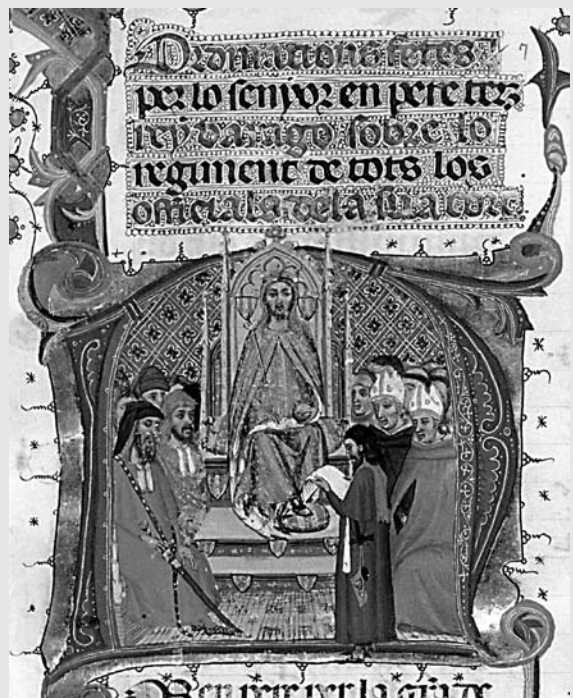 Ordinacions fetes
per lo senyor en pere terz
rey darago sobre lo
regiment de tots los
officials de la sua cort
En pere per la gracia de